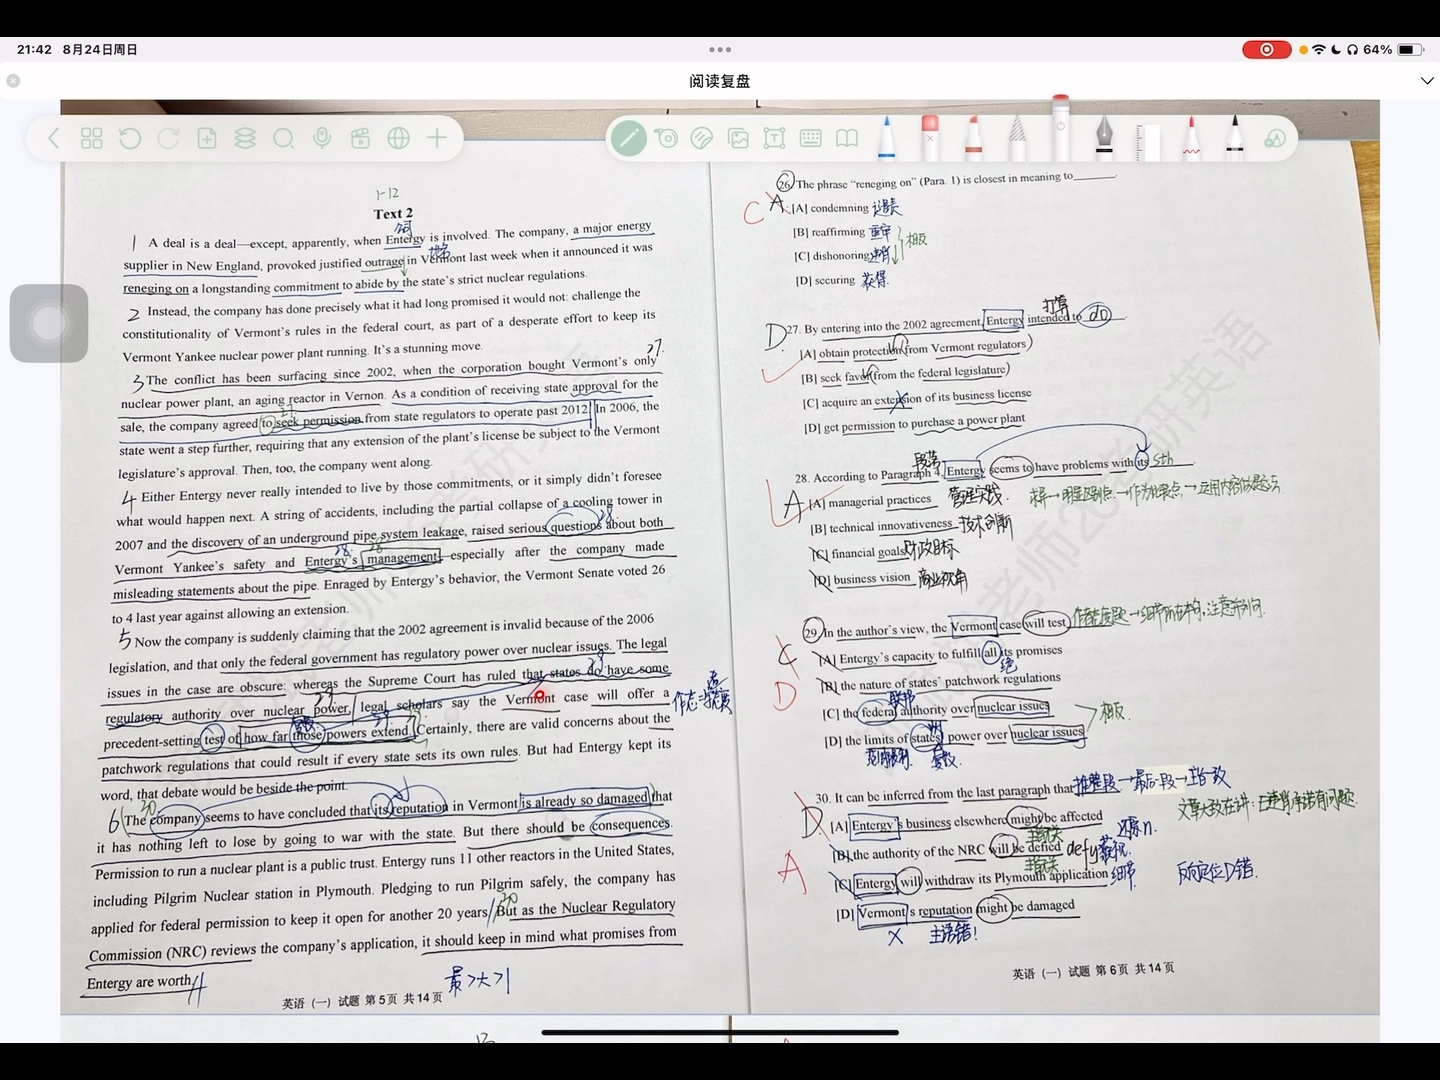 21:42 8月24日周日
64%
阅读复盘
1-12
Text 2
1 A deal is a deal—except, apparently, when Entergy is involved. The company, a major energy
supplier in New England, provoked justified outrage in Vermont last week when it announced it was
reneging on a longstanding commitment to abide by the state's strict nuclear regulations.
2 Instead, the company has done precisely what it had long promised it would not: challenge the
constitutionality of Vermont's rules in the federal court, as part of a desperate effort to keep its
Vermont Yankee nuclear power plant running. It's a stunning move.
27.
3 The conflict has been surfacing since 2002, when the corporation bought Vermont's only
nuclear power plant, an aging reactor in Vernon. As a condition of receiving state approval for the
sale, the company agreed to seek permission from state regulators to operate past 2012. In 2006, the
state went a step further, requiring that any extension of the plant's license be subject to the Vermont
legislature's approval. Then, too, the company went along.
4 Either Entergy never really intended to live by those commitments, or it simply didn't foresee
what would happen next. A string of accidents, including the partial collapse of a cooling tower in
2007 and the discovery of an underground pipe system leakage, raised serious questions about both
Vermont Yankee's safety and Entergy's management, especially after the company made
misleading statements about the pipe. Enraged by Entergy's behavior, the Vermont Senate voted 26
to 4 last year against allowing an extension.
5 Now the company is suddenly claiming that the 2002 agreement is invalid because of the 2006
legislation, and that only the federal government has regulatory power over nuclear issues. The legal
issues in the case are obscure: whereas the Supreme Court has ruled that states do have some
regulatory authority over nuclear power, legal scholars say the Vermont case will offer a
precedent-setting test of how far those powers extend. Certainly, there are valid concerns about the
patchwork regulations that could result if every state sets its own rules. But had Entergy kept its
word, that debate would be beside the point.
6 The company seems to have concluded that its reputation in Vermont is already so damaged that
it has nothing left to lose by going to war with the state. But there should be consequences.
Permission to run a nuclear plant is a public trust. Entergy runs 11 other reactors in the United States,
including Pilgrim Nuclear station in Plymouth. Pledging to run Pilgrim safely, the company has
applied for federal permission to keep it open for another 20 years. But as the Nuclear Regulatory
Commission (NRC) reviews the company's application, it should keep in mind what promises from
Entergy are worth.
英语（一）试题 第5页 共14页
26. The phrase “reneging on” (Para. 1) is closest in meaning to
C A [A] condemning 谴责
[B] reaffirming 重申
[C] dishonoring 相反
[D] securing 获得
打算
D 27. By entering into the 2002 agreement, Entergy intended to do
[A] obtain protection from Vermont regulators
[B] seek favor from the federal legislature
[C] acquire an extension of its business license
[D] get permission to purchase a power plant
段落
28. According to Paragraph 4, Entergy seems to have problems with its sth
A [A] managerial practices 管理实践.
[B] technical innovativeness 技术创新
[C] financial goals 财政目标
[D] business vision 商业视角
29. In the author's view, the Vermont case will test
[A] Entergy's capacity to fulfill all its promises
绝
D [B] the nature of states' patchwork regulations
联邦
[C] the federal authority over nuclear issues
相反.
州
[D] the limits of states' power over nuclear issues
30. It can be inferred from the last paragraph that 推断段→最后一段→主旨一致
D [A] Entergy's business elsewhere might be affected
[B] the authority of the NRC will be defied defy 藐视.
A [C] Entergy will withdraw its Plymouth application 细节 反向定位D错.
[D] Vermont's reputation might be damaged
X 主语错!
英语（一）试题 第6页 共14页